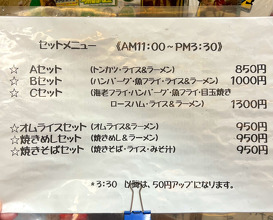 セットメニュー 《AM11:00~PM3:30》
☆ Aセット (トンカツ・ライス&ラーメン) 850円
☆ Bセット (ハンバーグ・魚フライ・ライス&ラーメン) 1000円
☆ Cセット (海老フライ・ハンバーグ・魚フライ・目玉焼き
ロースハム・ライス&ラーメン) 1300円
☆オムライスセット (オムライス&ラーメン) 950円
☆焼きめしセット (焼きめし&ラーメン) 950円
☆焼きそばセット (焼きそば・ライス・みそ汁) 950円
*3:30 以降は、50円アップになります。